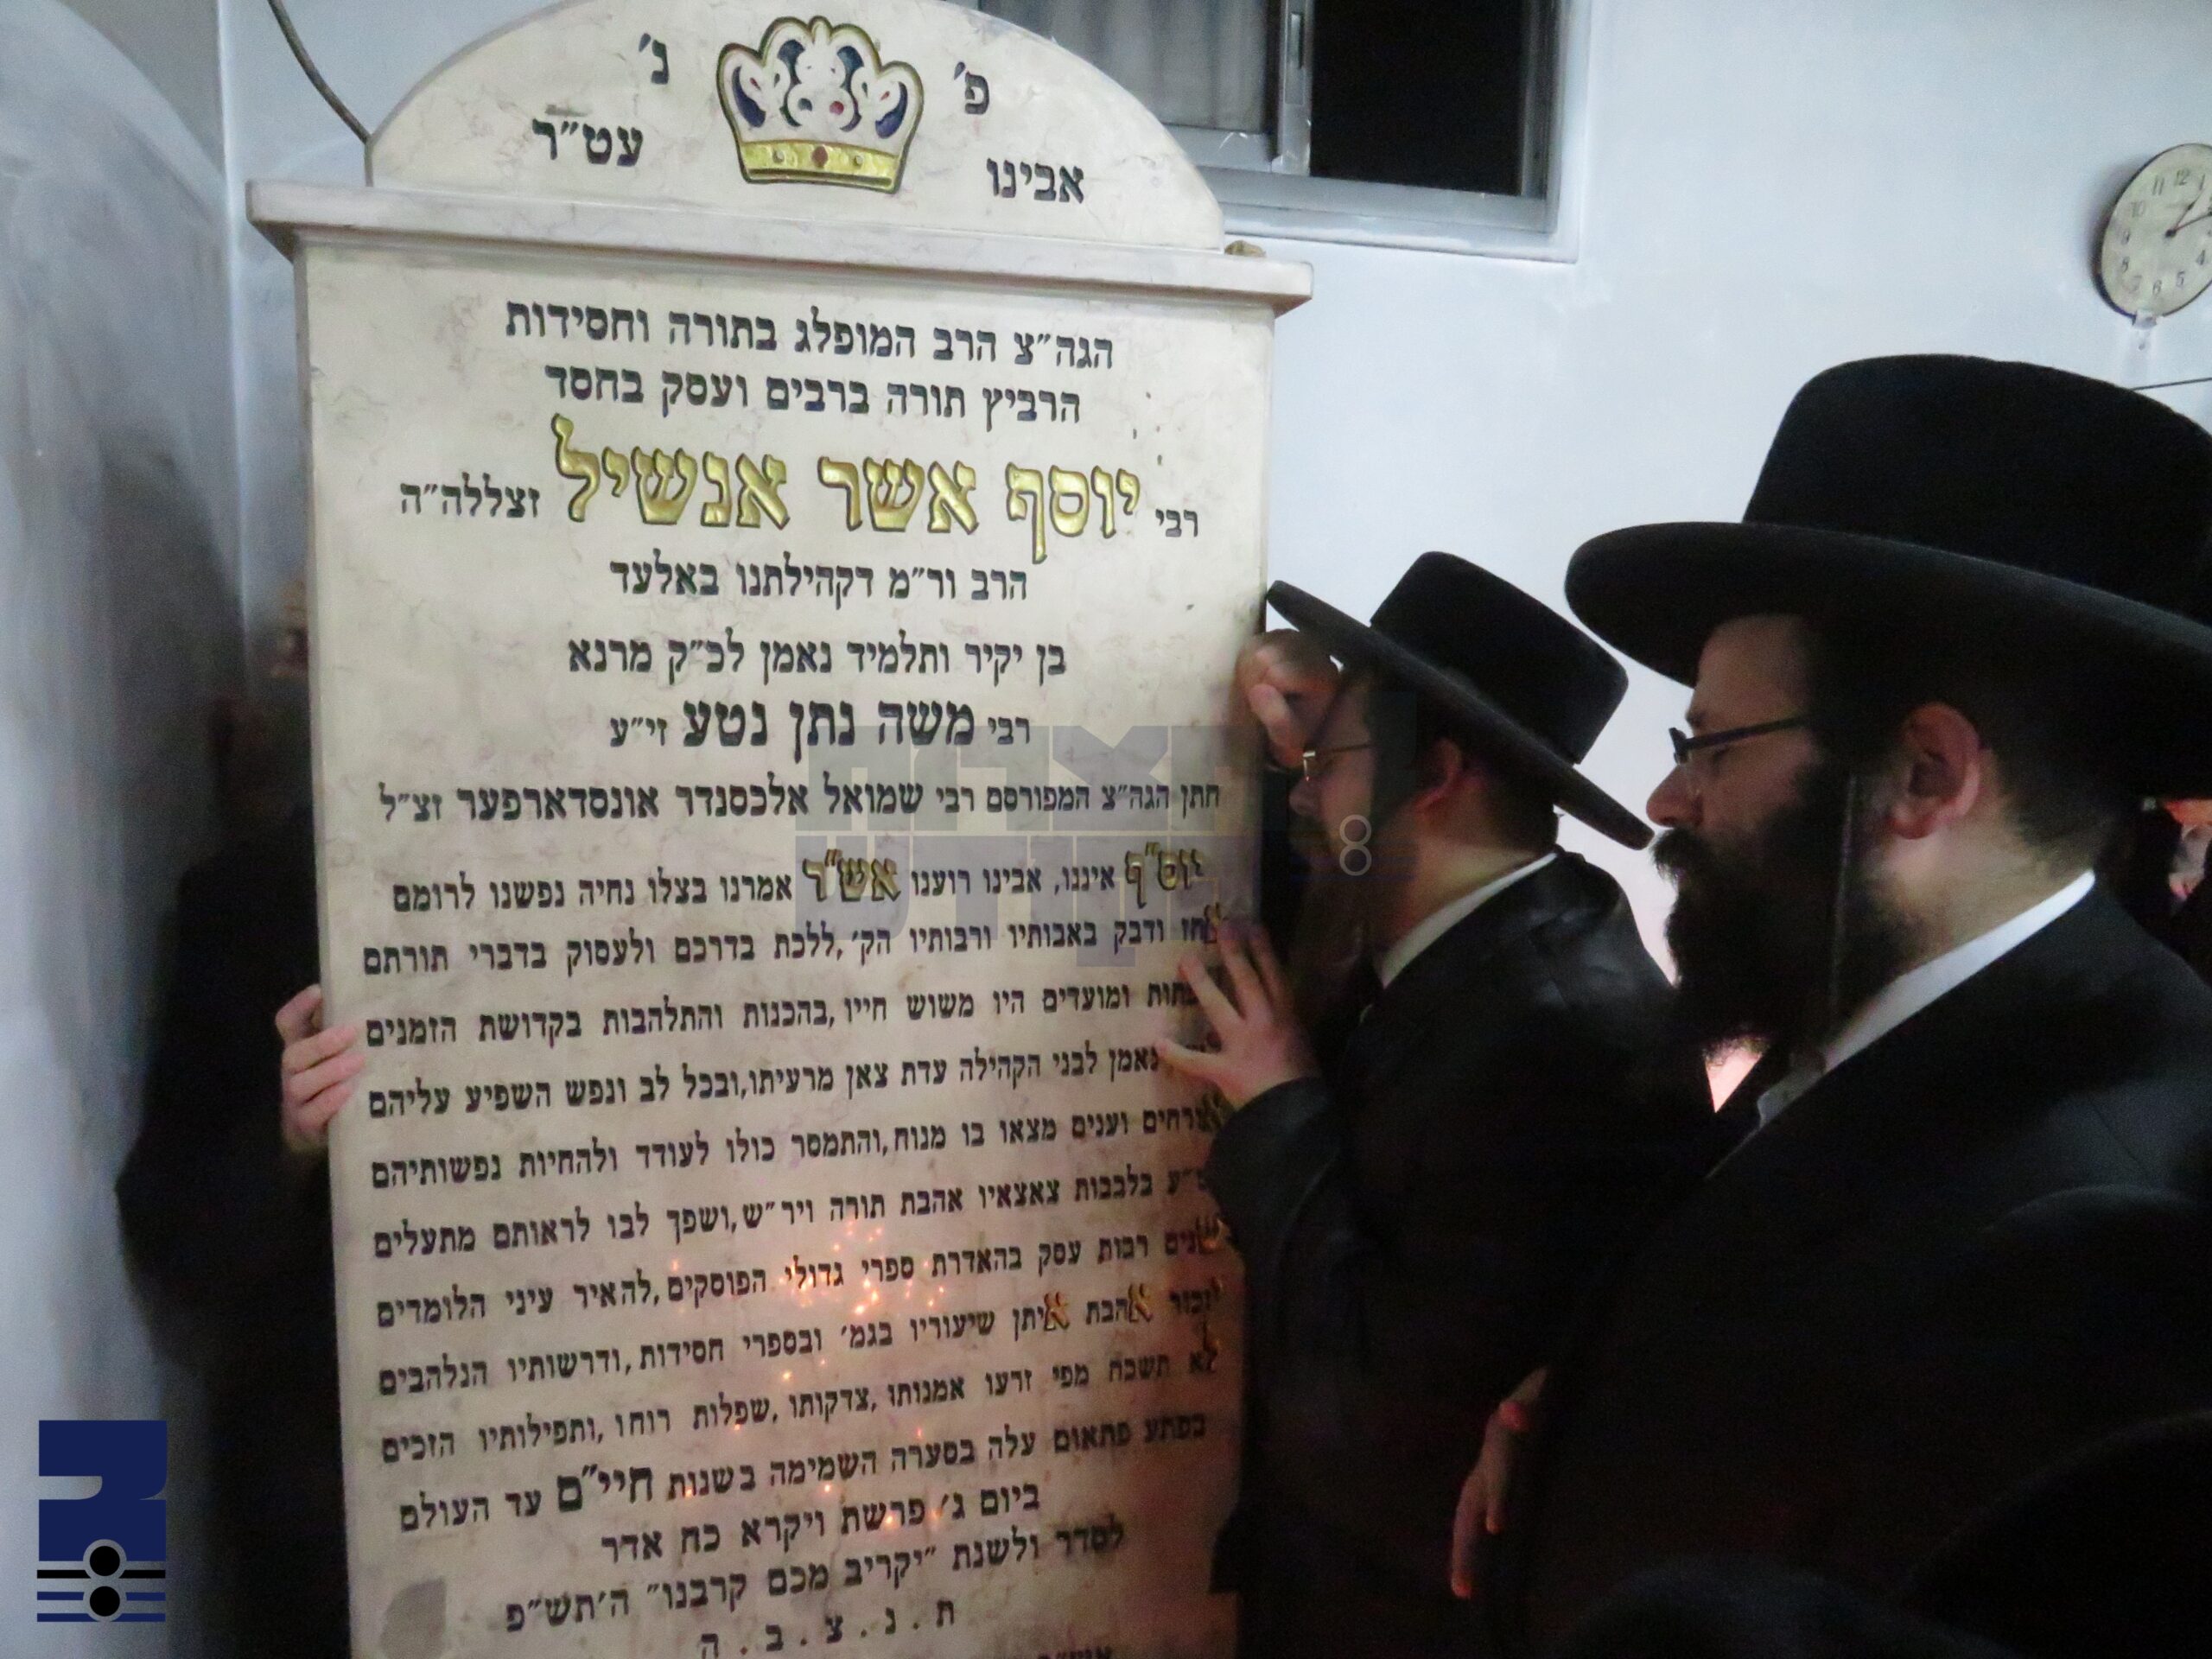 פ׳ נ׳
אבינו עט״ר
הגה״צ הרב המופלג בתורה וחסידות
הרביץ תורה ברבים ועסק בחסד
רבי יוסף אשר אנשיל זצללה״ה
הרב ור״מ דקהילתנו באלעד
בן יקיר ותלמיד נאמן לכ״ק מרנא
רבי משה נתן נטע זי״ע
חתן הגה״צ המפורסם רבי שמואל אלכסנדר אונסדארפער זצ״ל
יוס״ף איננו, אבינו רוענו אש״ר אמרנו בצלו נחיה נפשנו לרומם
אחז ודבק באבותיו ורבותיו הק׳, ללכת בדרכם ולעסוק בדברי תורתם
ומועדים היו משוש חייו, בהכנות והתלהבות בקדושת הזמנים
נאמן לבני הקהילה עדת צאן מרעיתו, ובכל לב ונפש השפיע עליהם
וענים מצאו בו מנוח, והתמסר כולו לעודד ולהחיות נפשותיהם
בלבבות צאצאיו אהבת תורה ויר״ש, ושפך לבו לראותם מתעלים
שנים רבות עסק בהאדרת ספרי גדולי הפוסקים, להאיר עיני הלומדים
אהבת איתן שיעוריו בגמ׳ ובספרי חסידות, ודרשותיו הנלהבים
לא תשכח מפי זרעו אמנותו, צדקותו, שפלות רוחו, ותפילותיו הזכים
בפתע פתאום עלה בסערה השמימה בשנות חיי״ם עד העולם
ביום ג׳ פרשת ויקרא כח אדר
לסדר ולשנת ״יקריב מכם קרבנו״ ה׳תש״פ
ת . נ . צ . ב . ה
12 1 11 10 9 8 7 6 5 4